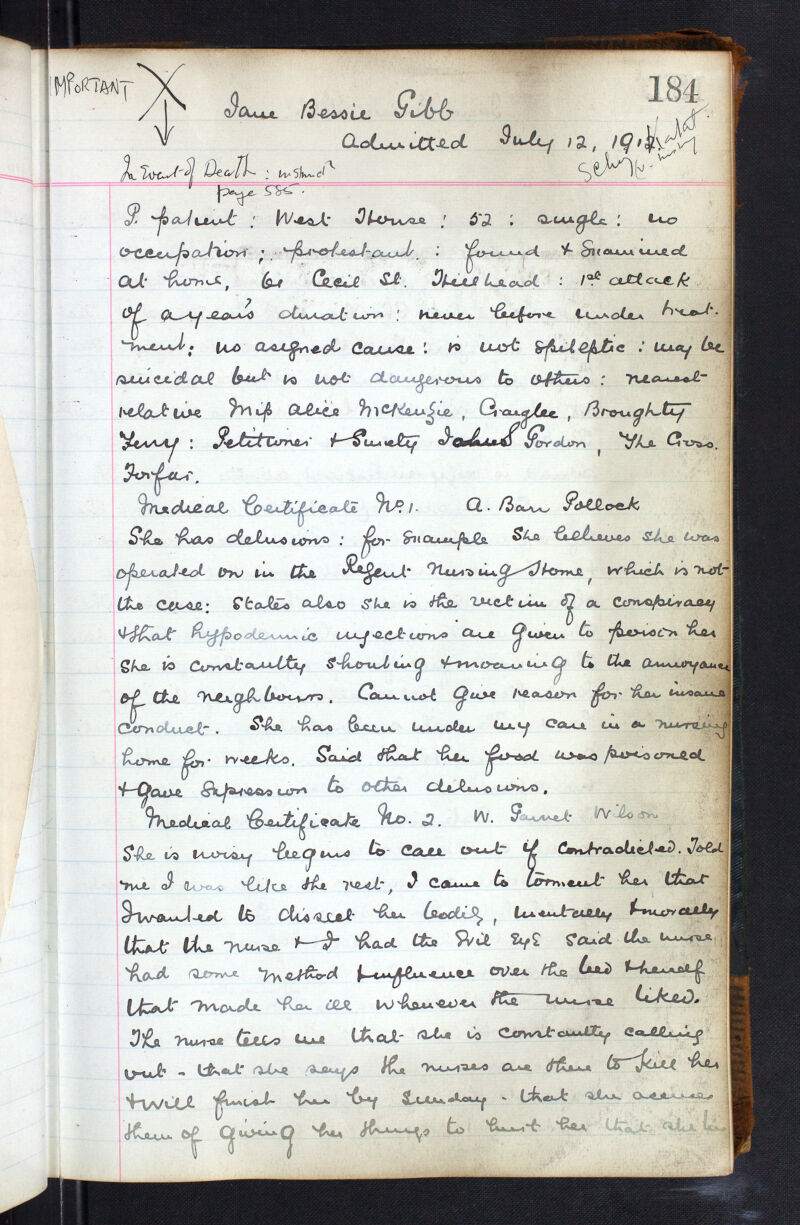 IMPORTANT
184
Jane Bessie Gibb
Admitted July 12, 1912
In Event of Death: instrucn
page 585.
P. patient: West House: 52: single: no
occupation: protestant: found & examined
at home, 61 Cecil St. Hillhead: 1st attack
of a year's duration: never before under treat-
ment: no asigned cause: is not epileptic: may be
suicidal but is not dangerous to others: nearest
relative Miss Alice McKenzie, Craiglee, Broughty
Ferry: Petitioner & Surety Gordon, The Cross.
Forfar.
Medical Certificate No. 1. A. Barr Pollock
She has delusions: for example She believes she was
operated on in the Regent Nursing Home, which is not
the case: States also she is the victim of a conspiracy
& that hypodermic injections are given to poison her
She is constantly shouting & moaning to the annoyance
of the neighbours. Cannot give reason for her insane
conduct. She has been under my care in a nursing
home for weeks. Said that her food was poisoned
& gave expression to other delusions.
Medical Certificate No. 2. W. Garnet Wilson
She is noisy begins to call out if contradicted. Told
me I was like the rest, I came to torment her that
I wanted to dissect her bodily, mentally & morally
that the nurse & I had the Evil EyE said the nurse
had some method & influence over the bed & herself
that made her ill whenever the nurse liked.
The nurse tells me that she is constantly calling
out - that she says the nurses are there to kill her
& will finish her by Sunday - that she accuses
them of giving her things to hurt her that she